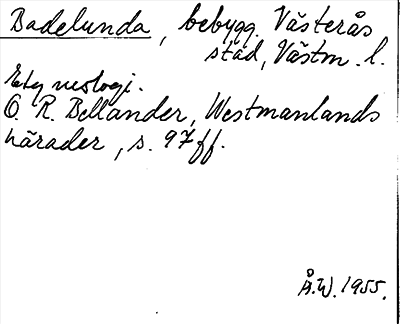 Badelunda, bebygg. Västerås
stad, Västm. l.
Etymologi.
O. R. Bellander, Westmanlands
härader, s. 97 ff.
Å.W. 1955.